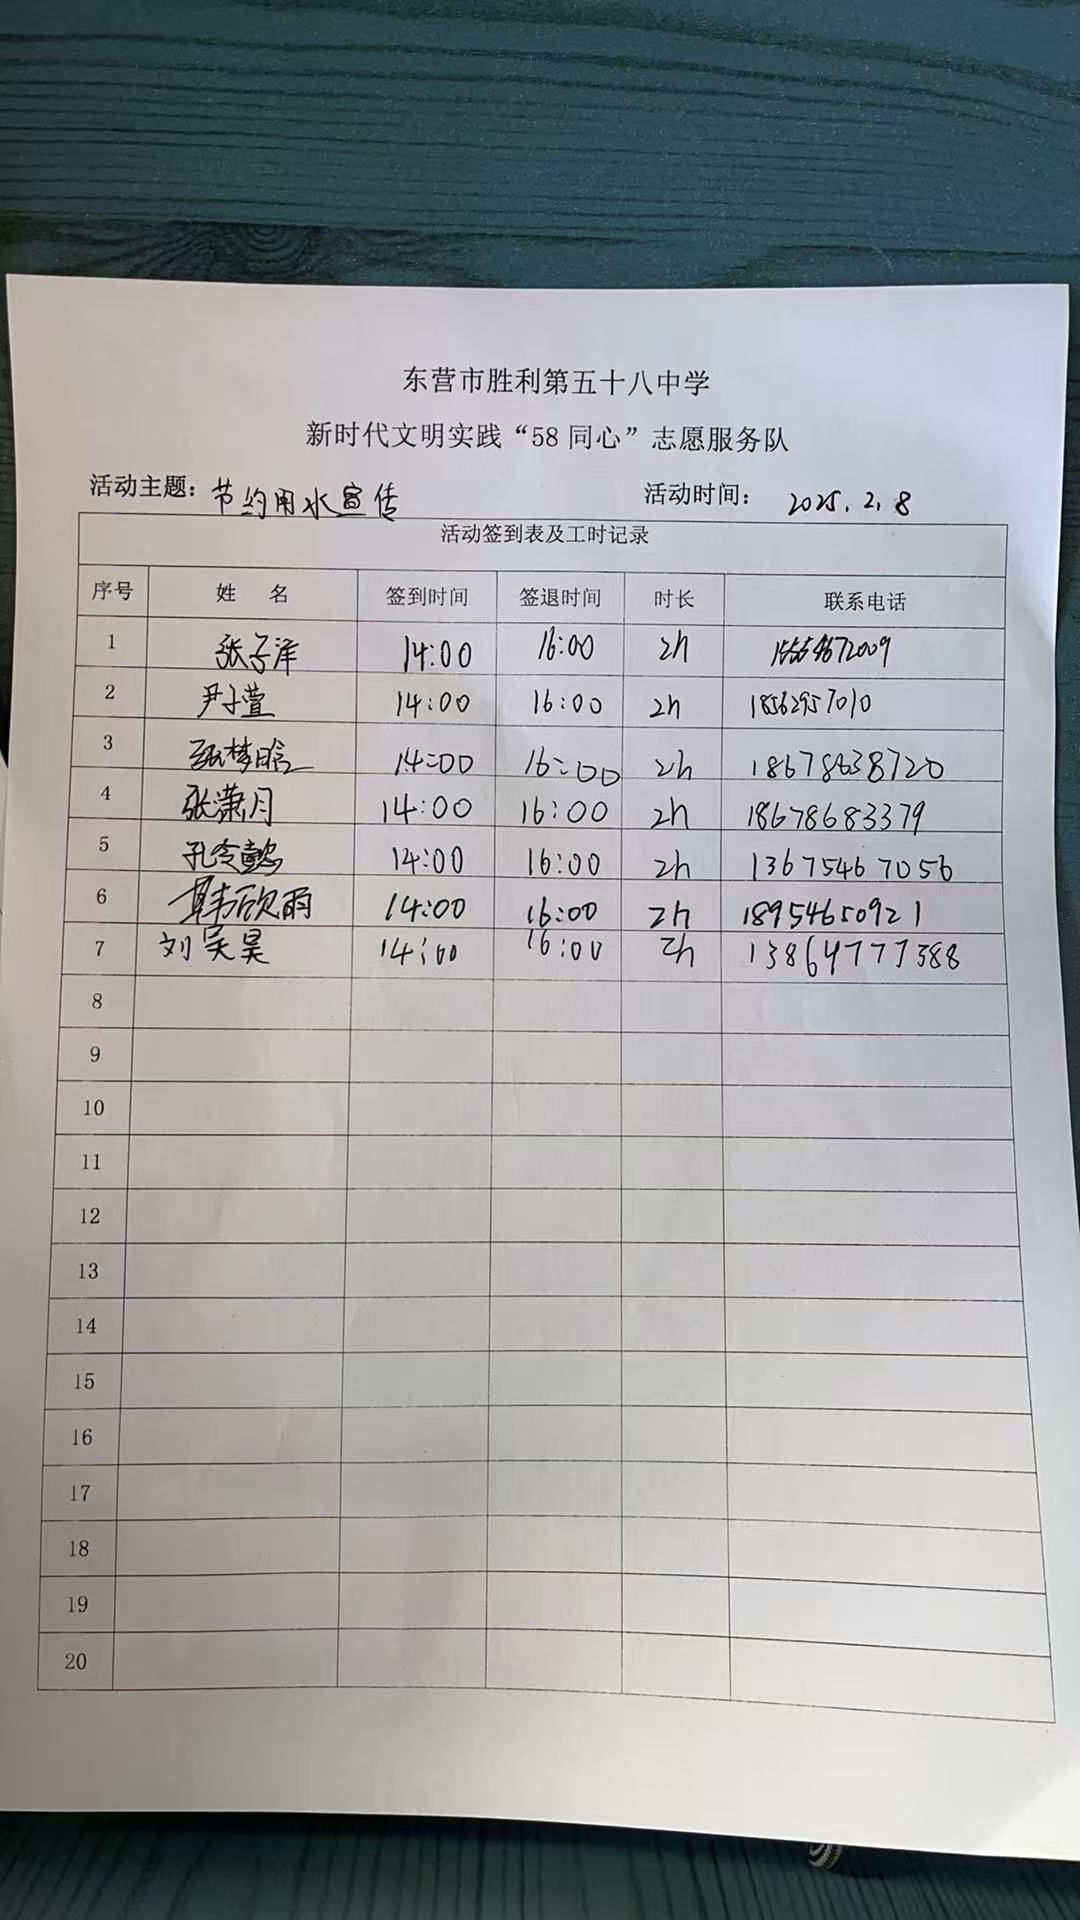 东营市胜利第五十八中学
新时代文明实践“58 同心”志愿服务队
活动主题：节约用水宣传 活动时间： 2025.2.8
活动签到表及工时记录
序号 姓 名 签到时间 签退时间 时长 联系电话
1 张子洋 14:00 16:00 2h
2 尹子萱 14:00 16:00 2h 18562957010
3 张梦晗 14:00 16:00 2h 18678638720
4 张潇月 14:00 16:00 2h 18678683379
5 孔令懿 14:00 16:00 2h 13675467056
6 韩欣雨 14:00 16:00 2h 18954650921
7 刘昊昊 14:00 16:00 2h 13864777388
8
9
10
11
12
13
14
15
16
17
18
19
20